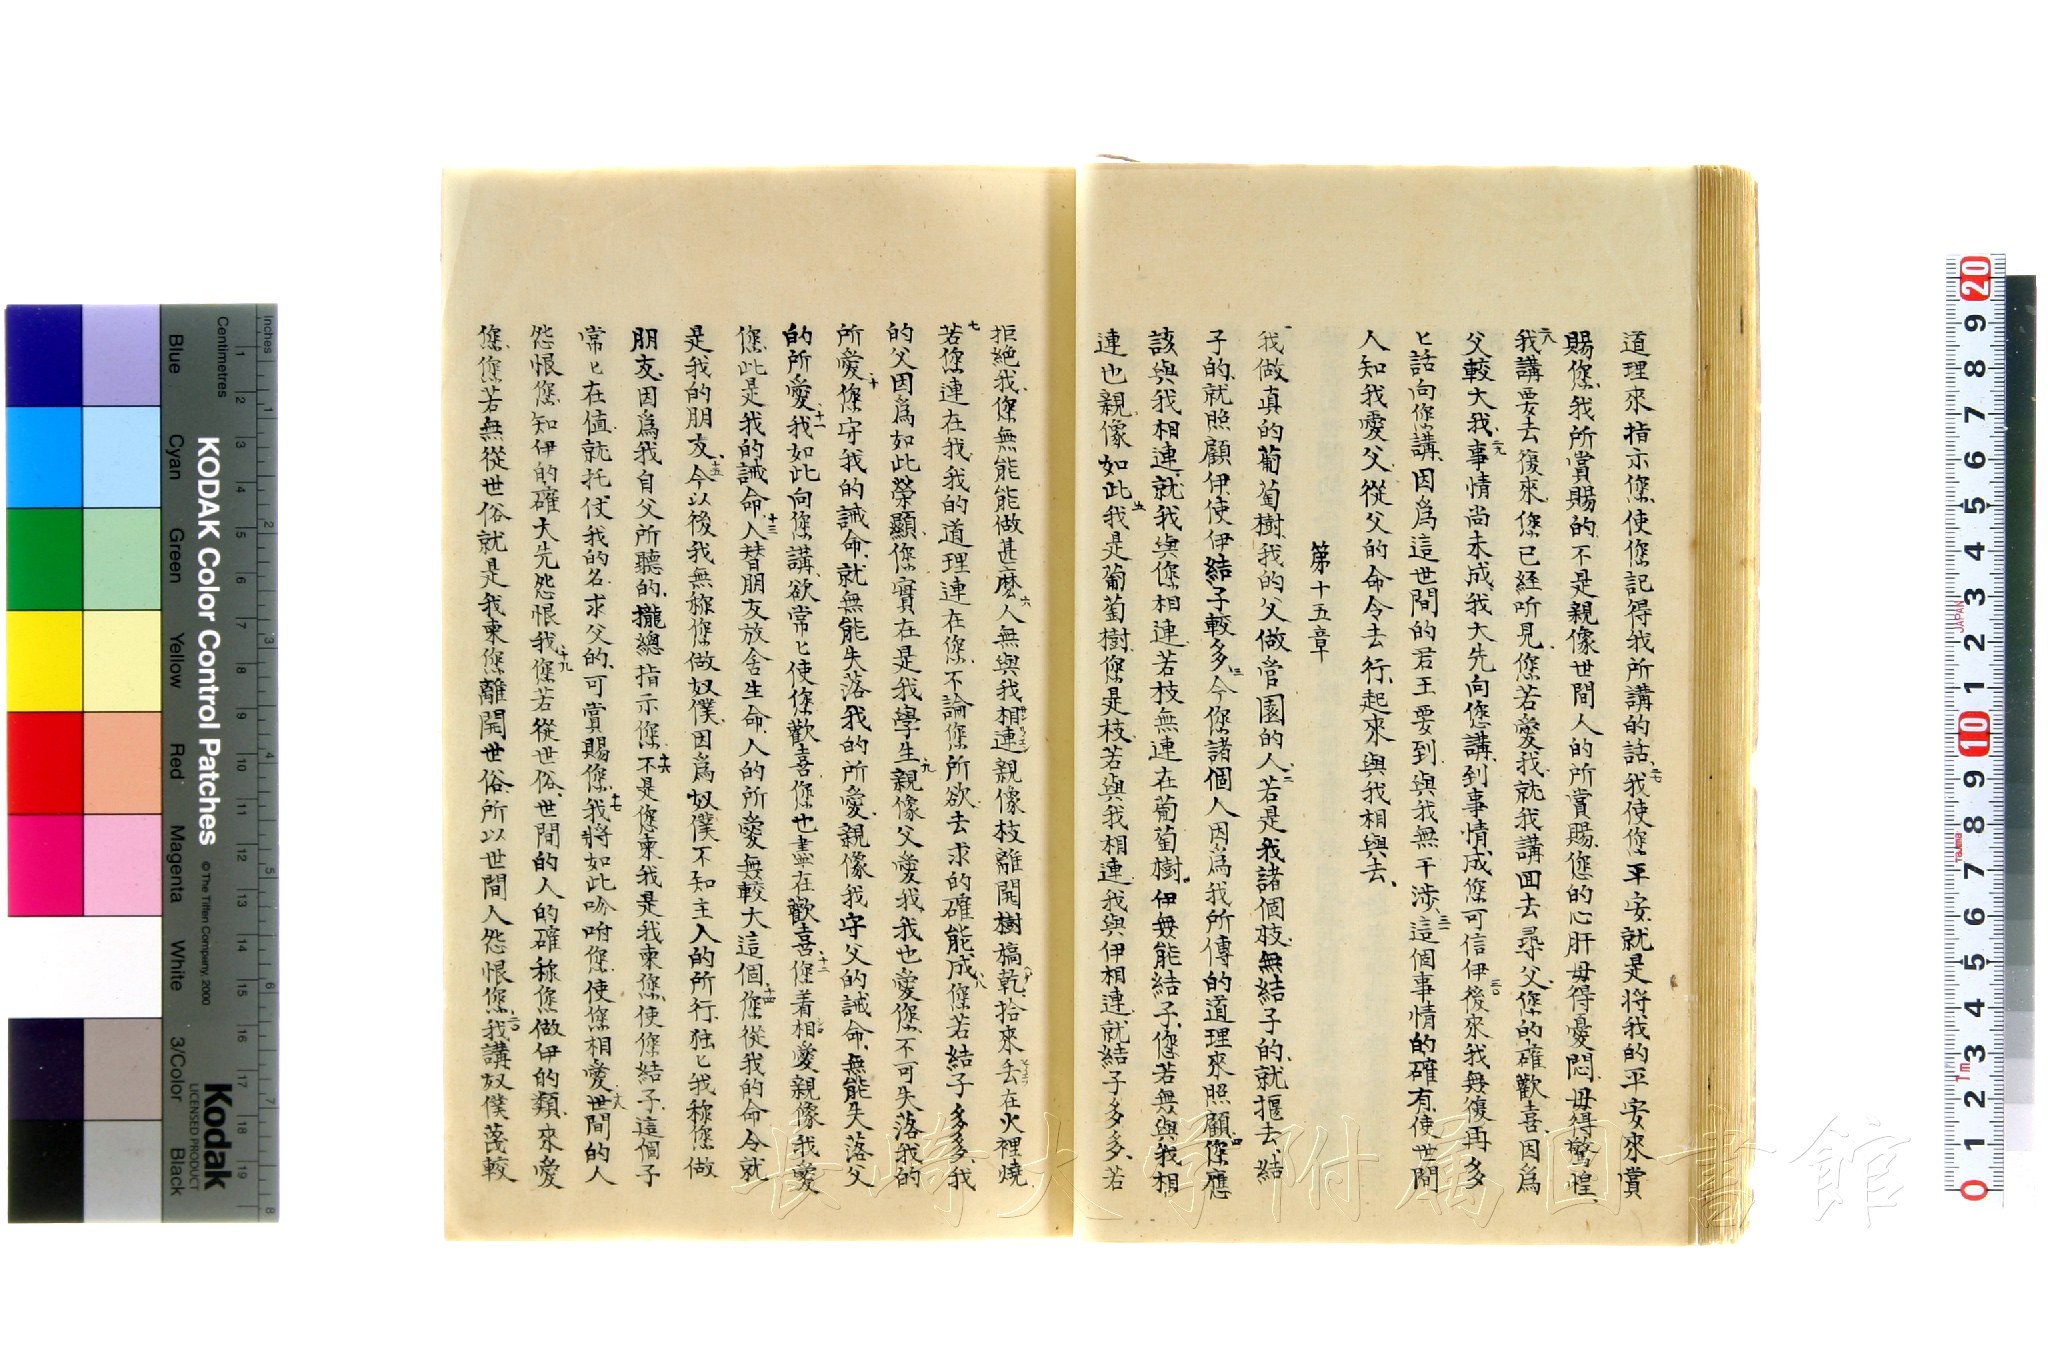 道理來指示您、使您記得我所講的話、二七我使您平安就是将我的平安來賞
賜您、我所賞賜的、不是親像世間人的所賞賜、您的心肝毋得憂悶、毋得驚惶、
二八我講要去復來、您已經听見、您若愛我、就我講回去尋父、您的確歡喜、因爲
父較大我、二九事情尚未成、我大先向您講、到事情成、您可信伊、三十後來我無復再多
匕話向您講、因爲這世間的君王要到、與我無干涉、三一這個事情的確有、使世間
人知我愛父、從父的命令去行、起來與我相與去、
第十五章
一我做真的葡萄樹、我的父做管園的人、二若是我諸個枝、無結子的、就摳去、結
子的、就照顧伊、使伊結子較多、三今您諸個人因爲我所傳的道理來照顧、四您應
該與我相連、就我與您相連、若枝無連在葡萄樹、伊無能結子、您若無與我相
連也親像如此、五我是葡萄樹、您是枝、若與我相連、我與伊相連、就結子多多、若
拒絶我、您無能能做甚麽、六人無與我相連、親像枝離開樹槁乾、拾來丢在火裡燒、
七若您連在我、我的道理連在您、不論您所欲、去求的確能成、八您若結子多多、我
的父因爲如此榮顯、您實在是我學生、九親像父愛我、我也愛您、不可失落我的
所愛、十您守我的誡命、就無能失落我的所愛、親像我守父的誡命、無能失落父
的所愛、十一我如此向您講、欲常匕使您歡喜、您也盡在歡喜、十二您着相愛親像我愛
您、此是我的誡命、十三人替朋友放舍生命、人的所愛無較大這個、十四您從我的命令、就
是我的朋友、十五今以後我無称您做奴僕、因爲奴僕不知主人的所行、独匕我称您做
朋友、因爲我自父所聽的、攏總指示您、十六不是您東我、是我東您、使您結子、這個子
常匕在値、就托仗我的名、求父的、可賞賜您、十七我將如此吩咐您、使您相愛、十八世間的人
怨恨您、知伊的確大先怨恨我、十九您若從世俗、世間的人的確称您做伊的類、來愛
您、您若無從世俗、就是我東您離開世俗、所以世間人怨恨您、二十我講奴僕蔑較
KODAK Color Control Patches
© The Tiffen Company, 2000
Kodak
LICENSED PRODUCT
Inches
Centimetres
Blue
Cyan
Green
Yellow
Red
Magenta
White
3/Color
Black
JAPAN
長崎大学附属図書館